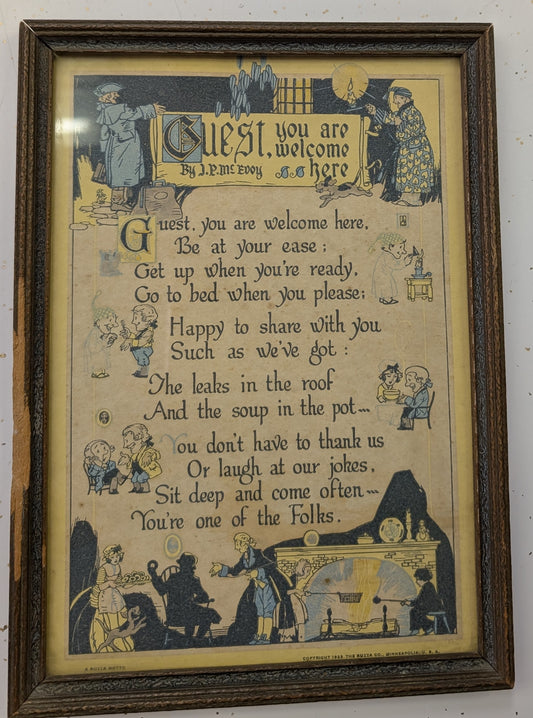 Guest, you are
welcome
By J.P. McEvoy here
Guest, you are welcome here,
Be at your ease;
Get up when you're ready,
Go to bed when you please;
Happy to share with you
Such as we've got:
The leaks in the roof
And the soup in the pot---
You don't have to thank us
Or laugh at our jokes,
Sit deep and come often---
You're one of the Folks.
A BUZZA MOTTO
COPYRIGHT 1925 THE BUZZA CO., MINNEAPOLIS, U. S. A.